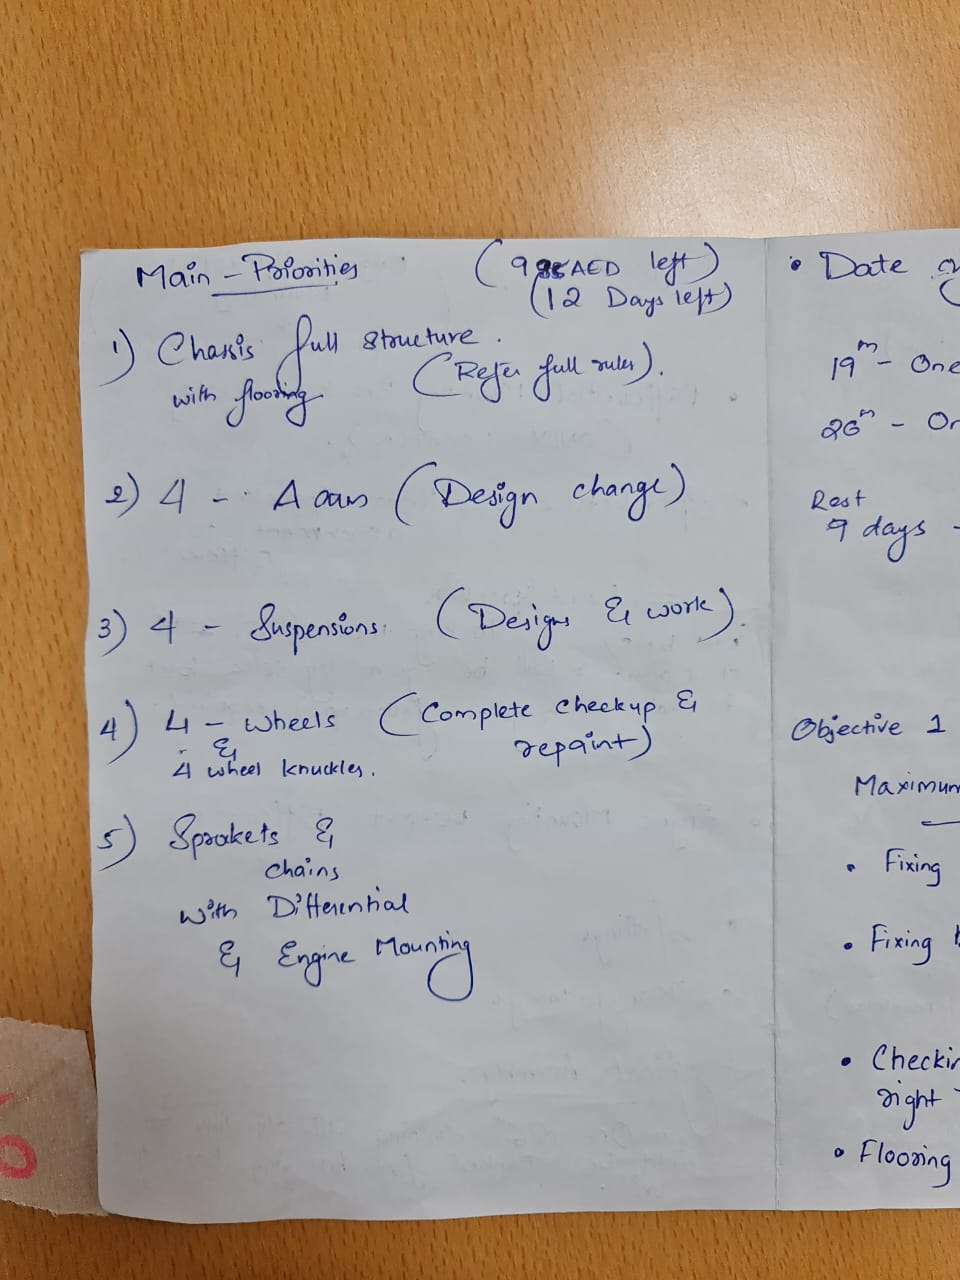 Main - Priorities
(985 AED left)
(12 Days left)
1) Chassis full structure.
with flooring (Refer full rules).
2) 4 - Arms (Design change)
3) 4 - Suspensions (Designs & work).
4) 4 - wheels (Complete checkup &
& repaint)
4 wheel knuckles.
5) Sprokets &
chains
with Differential
& Engine Mounting
• Date
19th - One
26th - On
Rest
9 days -
Objective 1
Maximum
• Fixing
• Fixing
• Checkin
right
• Flooring